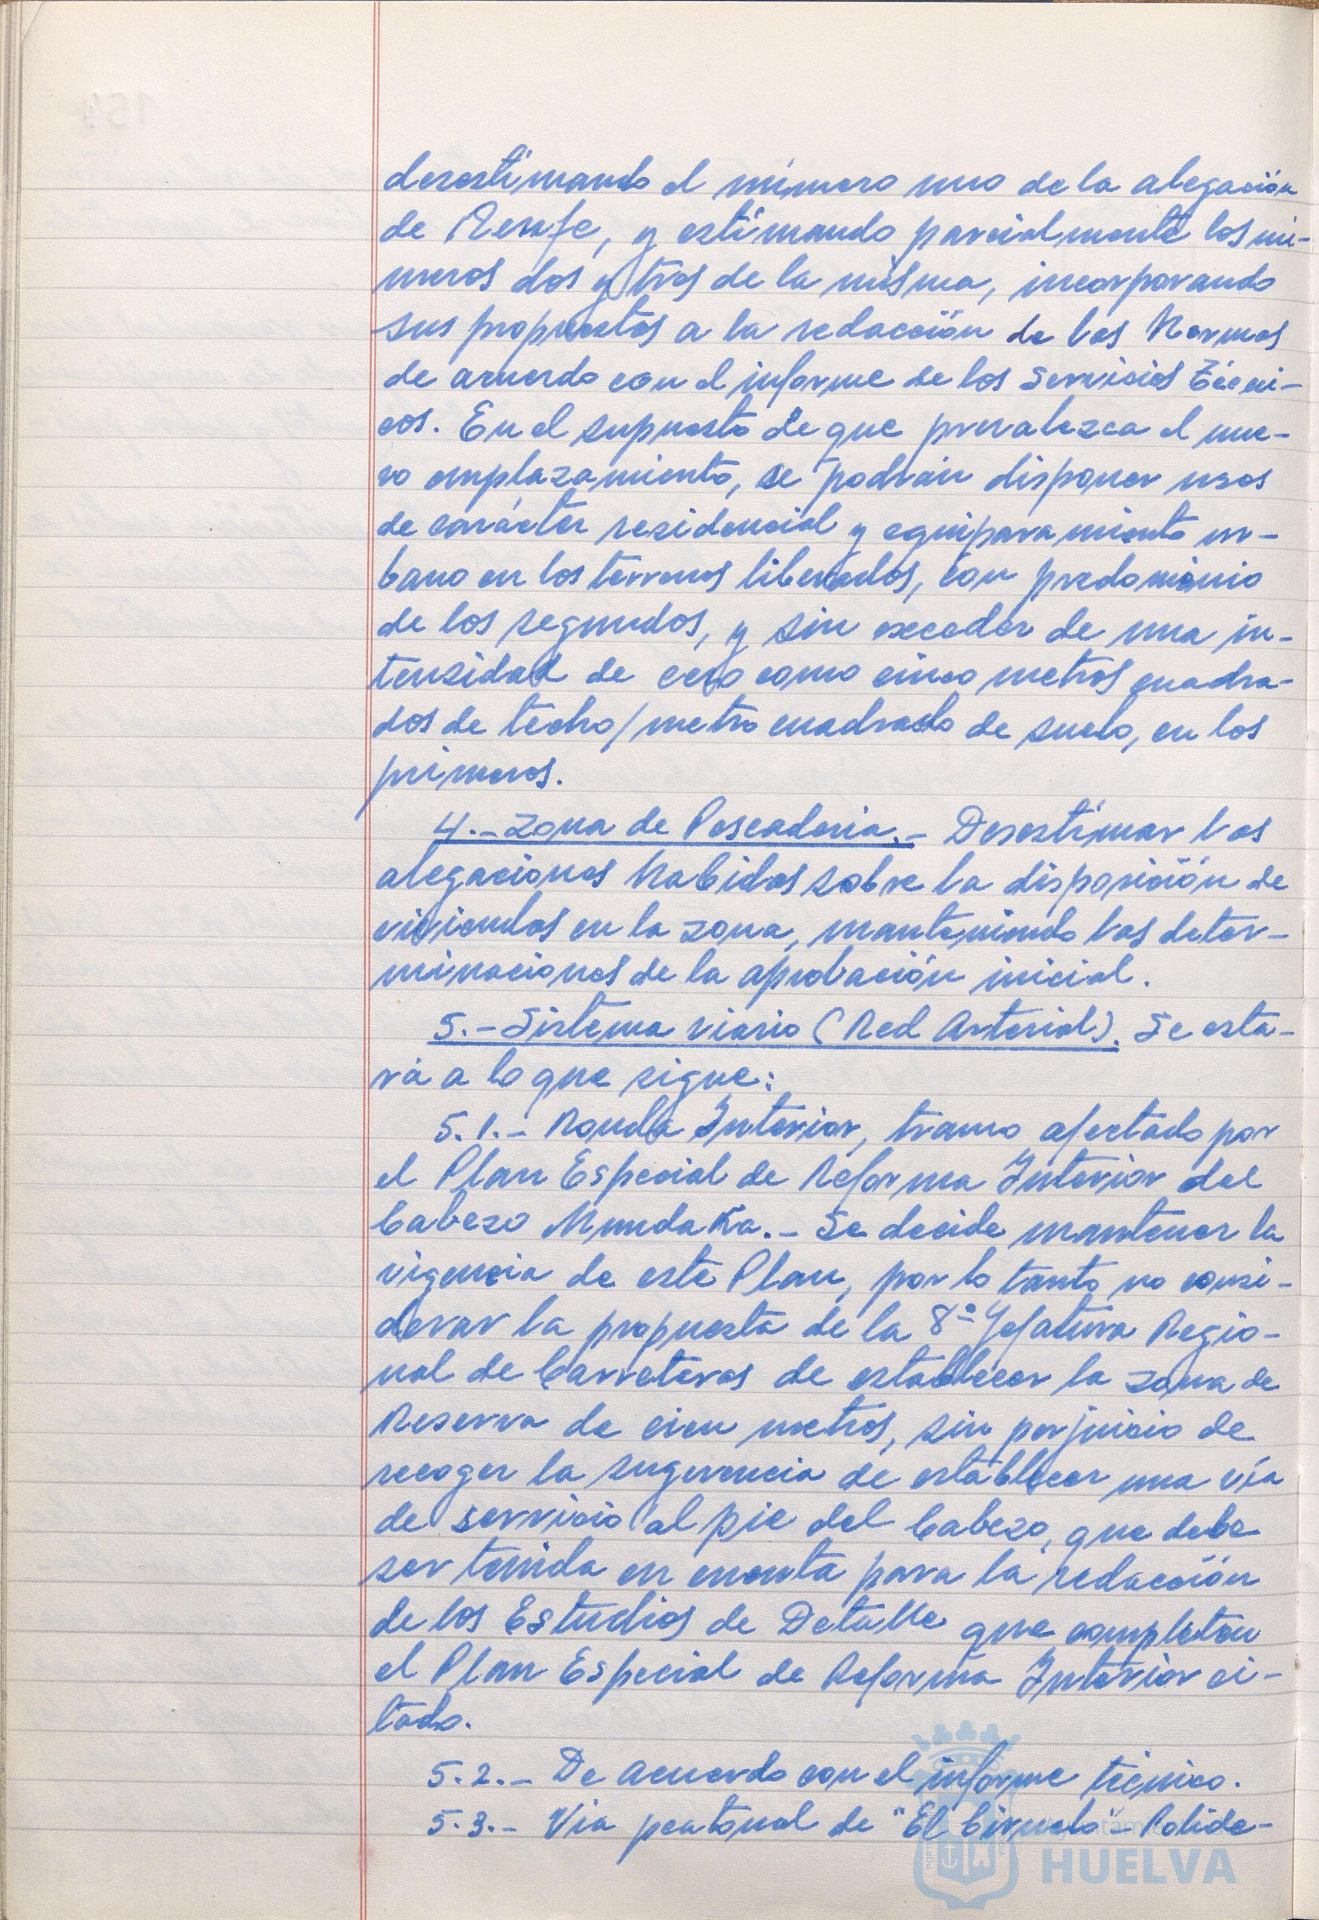 desestimando el número uno de la alegación
de Renfe, y estimando parcialmente los nú-
meros dos y tres de la misma, incorporando
sus propuestas a la redacción de las Normas
de acuerdo con el informe de los Servicios Técni-
cos. En el supuesto de que prevalezca el nue-
vo emplazamiento, se podrán disponer usos
de carácter residencial y equiparamiento ur-
bano en los terrenos liberados, con predominio
de los segundos, y sin exceder de una in-
tensidad de cero como cinco metros cuadra-
dos de techo/metro cuadrado de suelo, en los
primeros.
4.- Zona de Pescadería.- Desestimar las
alegaciones habidas sobre la disposición de
viviendas en la zona, manteniendo las deter-
minaciones de la aprobación inicial.
5.- Sistema viario (Red Arterial). Se esta-
rá a lo que sigue:
5.1.- Ronda Interior, tramo afectado por
el Plan Especial de Reforma Interior del
Cabezo Mundaka.- Se decide mantener la
vigencia de este Plan, por lo tanto no consi-
derar la propuesta de la 8ª Jefatura Regio-
nal de Carreteras de establecer la zona de
Reserva de cien metros, sin perjuicio de
recoger la sugerencia de establecer una vía
de servicio al pie del Cabezo, que debe
ser tenida en cuenta para la redacción
de los Estudios de Detalle que completen
el Plan Especial de Reforma Interior ci-
tado.
5.2.- De acuerdo con el informe técnico.
5.3.- Vía peatonal de "El Ciruelo" - Polide-
HUELVA